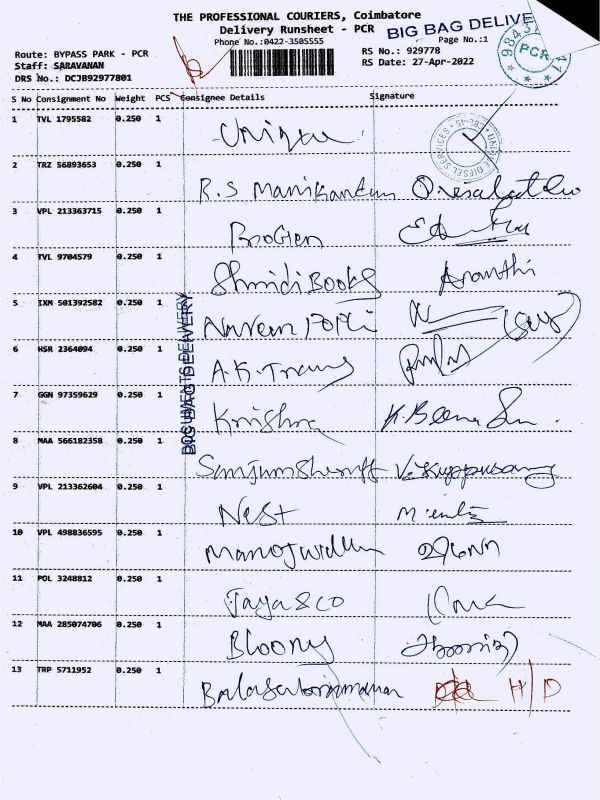 THE PROFESSIONAL COURIERS, Coimbatore
Delivery Runsheet - PCR
BIG BAG DELIVE
Phone No.:0422-3505555
Page No.:1
Route: BYPASS PARK - PCR
RS No.: 929778
Staff: SARAVANAN
RS Date: 27-Apr-2022
DRS No.: DCJB92977801
PCR
S No Consignment No Weight PCS Consignee Details Signature
1 TVL 1795582 0.250 1 Unique
2 TRZ 56893653 0.250 1 R.S Manikantan
3 VPL 213363715 0.250 1 BroGien
4 TVL 9704579 0.250 1 Shridi Books Ananthi
5 IXM 501392582 0.250 1 Naveen
6 HSR 2364094 0.250 1 A.K.Trans
7 GGN 97359629 0.250 1 Krishna K.Beena
8 MAA 566182358 0.250 1 V.Kuppusamy
9 VPL 213362604 0.250 1 Nest
10 VPL 498836595 0.250 1
11 POL 3248812 0.250 1 Jaya & co Uma
12 MAA 285074706 0.250 1 Bloomy
13 TRP 5711952 0.250 1 Balasubramanian H/D
DOCUMENTS DELIVERY
BIG BAG DELIVERY